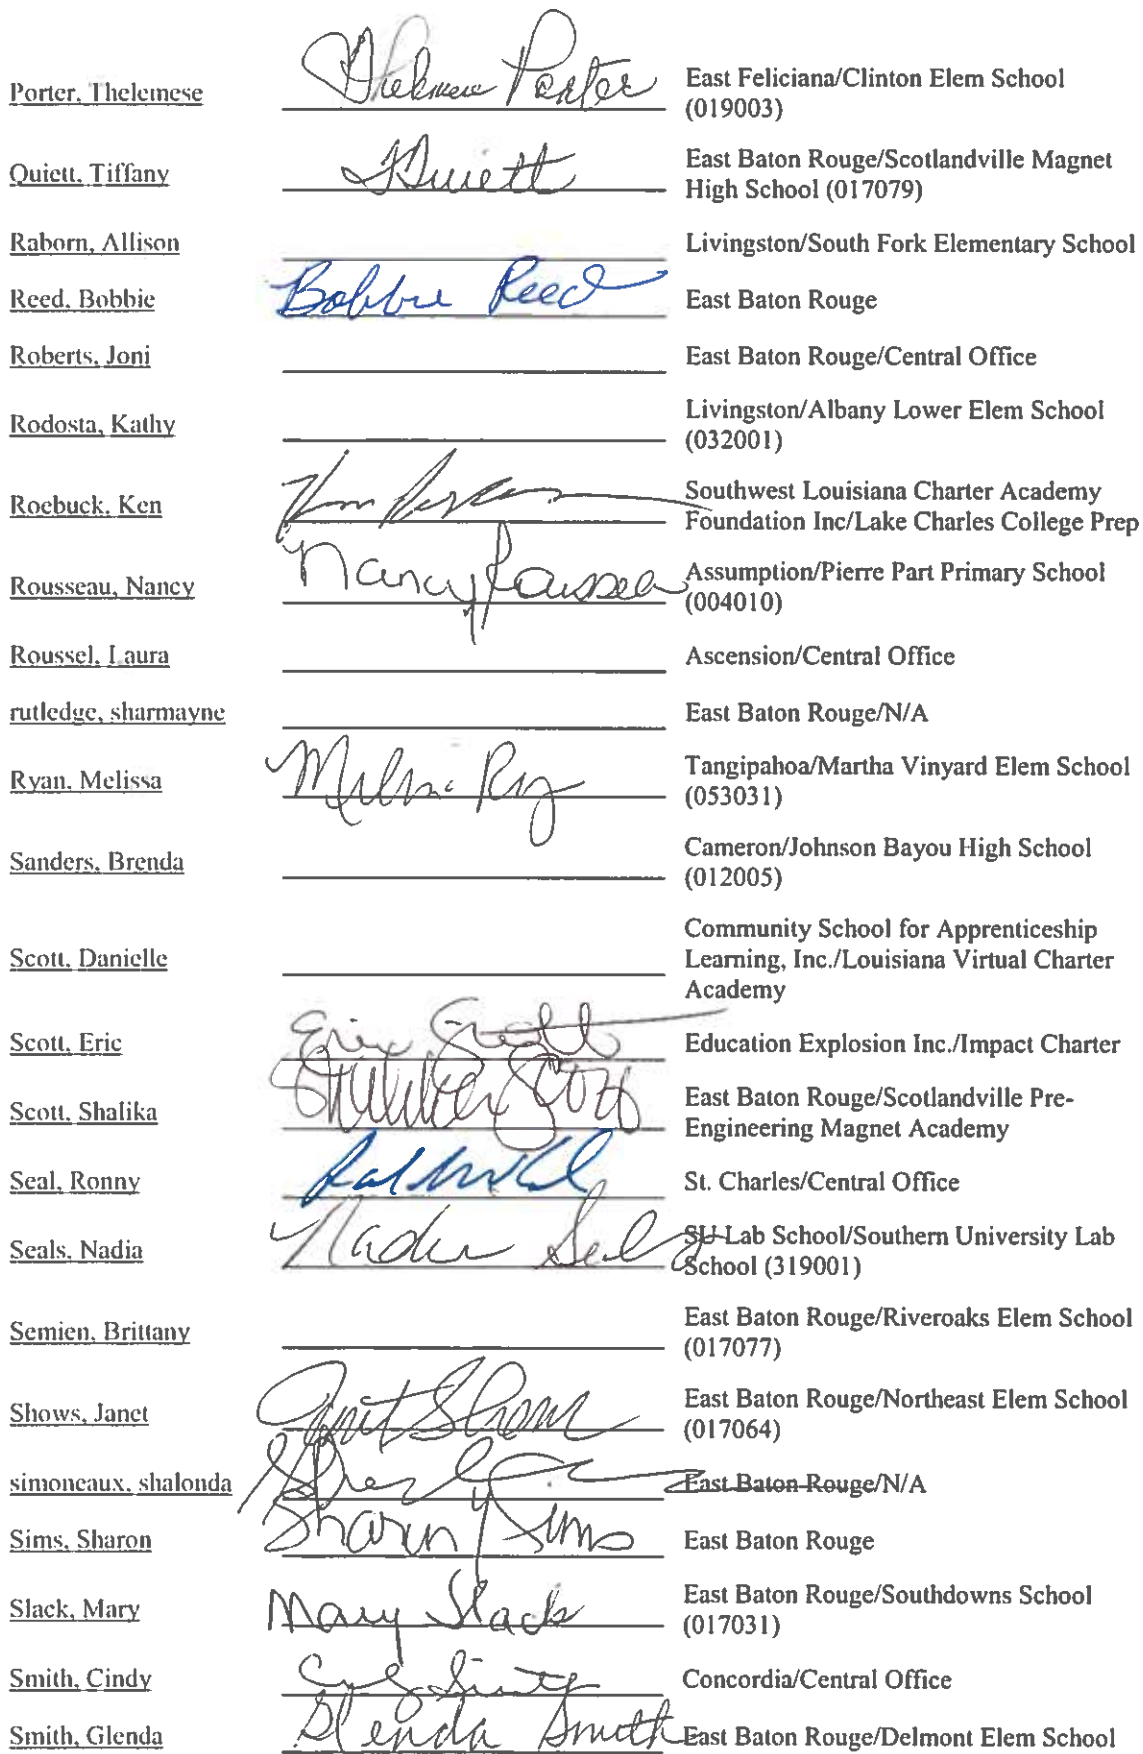 Porter, Thelemese Thelemese Porter East Feliciana/Clinton Elem School
(019003)
Quiett, Tiffany TQuiett East Baton Rouge/Scotlandville Magnet
High School (017079)
Raborn, Allison Livingston/South Fork Elementary School
Reed, Bobbie Bobbie Reed East Baton Rouge
Roberts, Joni East Baton Rouge/Central Office
Rodosta, Kathy Livingston/Albany Lower Elem School
(032001)
Roebuck, Ken Southwest Louisiana Charter Academy
Foundation Inc/Lake Charles College Prep
Rousseau, Nancy Nancy Rousseau Assumption/Pierre Part Primary School
(004010)
Roussel, Laura Ascension/Central Office
rutledge, sharmayne East Baton Rouge/N/A
Ryan, Melissa Tangipahoa/Martha Vinyard Elem School
(053031)
Sanders, Brenda Cameron/Johnson Bayou High School
(012005)
Community School for Apprenticeship
Scott, Danielle Learning, Inc./Louisiana Virtual Charter
Academy
Scott, Eric Eric Scott Education Explosion Inc./Impact Charter
Scott, Shalika Shalika Scott East Baton Rouge/Scotlandville Pre-
Engineering Magnet Academy
Seal, Ronny St. Charles/Central Office
Seals, Nadia Nadia Seals SU Lab School/Southern University Lab
School (319001)
Semien, Brittany East Baton Rouge/Riveroaks Elem School
(017077)
Shows, Janet Janet Shows East Baton Rouge/Northeast Elem School
(017064)
simoneaux, shalonda East Baton Rouge/N/A
Sims, Sharon Sharon Sims East Baton Rouge
Slack, Mary Mary Slack East Baton Rouge/Southdowns School
(017031)
Smith, Cindy Cindy Smith Concordia/Central Office
Smith, Glenda Glenda Smith East Baton Rouge/Delmont Elem School